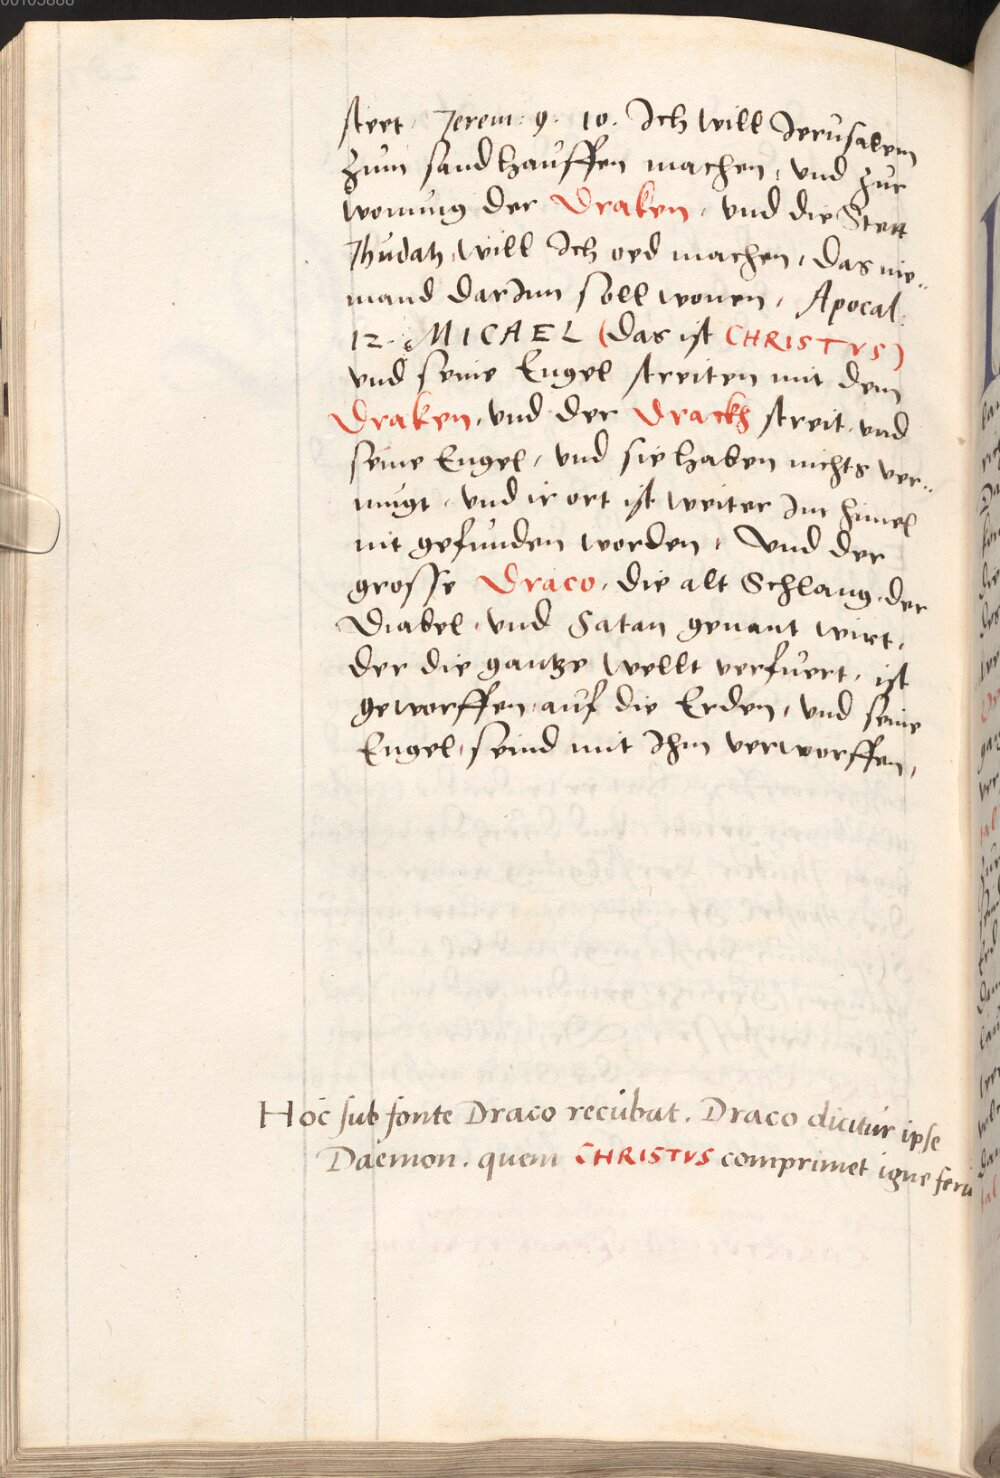 stert. Jerem: 9. 10. Ich will Jerusalem
zum sandhauffen machen, und zur
wonung der Draken, und die Stett
Jhudah, will Ich oed machen, das nie„
mand darInn soll wonen, Apocal:
12. MICAEL (das ist CHRISTVS)
und seine Engel streiten mit dem
Draken, und der Drackh streit, und
seine Engel, und sie haben nichts ver„
mugt, und ir ort ist weiter Im himel
nit gefunden worden, Und der
grosse Draco, die alt Schlang, der
Diabel, und Satan genant wirt,
der die gantze wellt verfuert, ist
geworffen auf die Erden, und seine
Engel, seind mit Ihm verworffen,
Hoc sub fonte Draco recubat. Draco dicitur ipse
Daemon. quem CHRISTVS comprimet igne